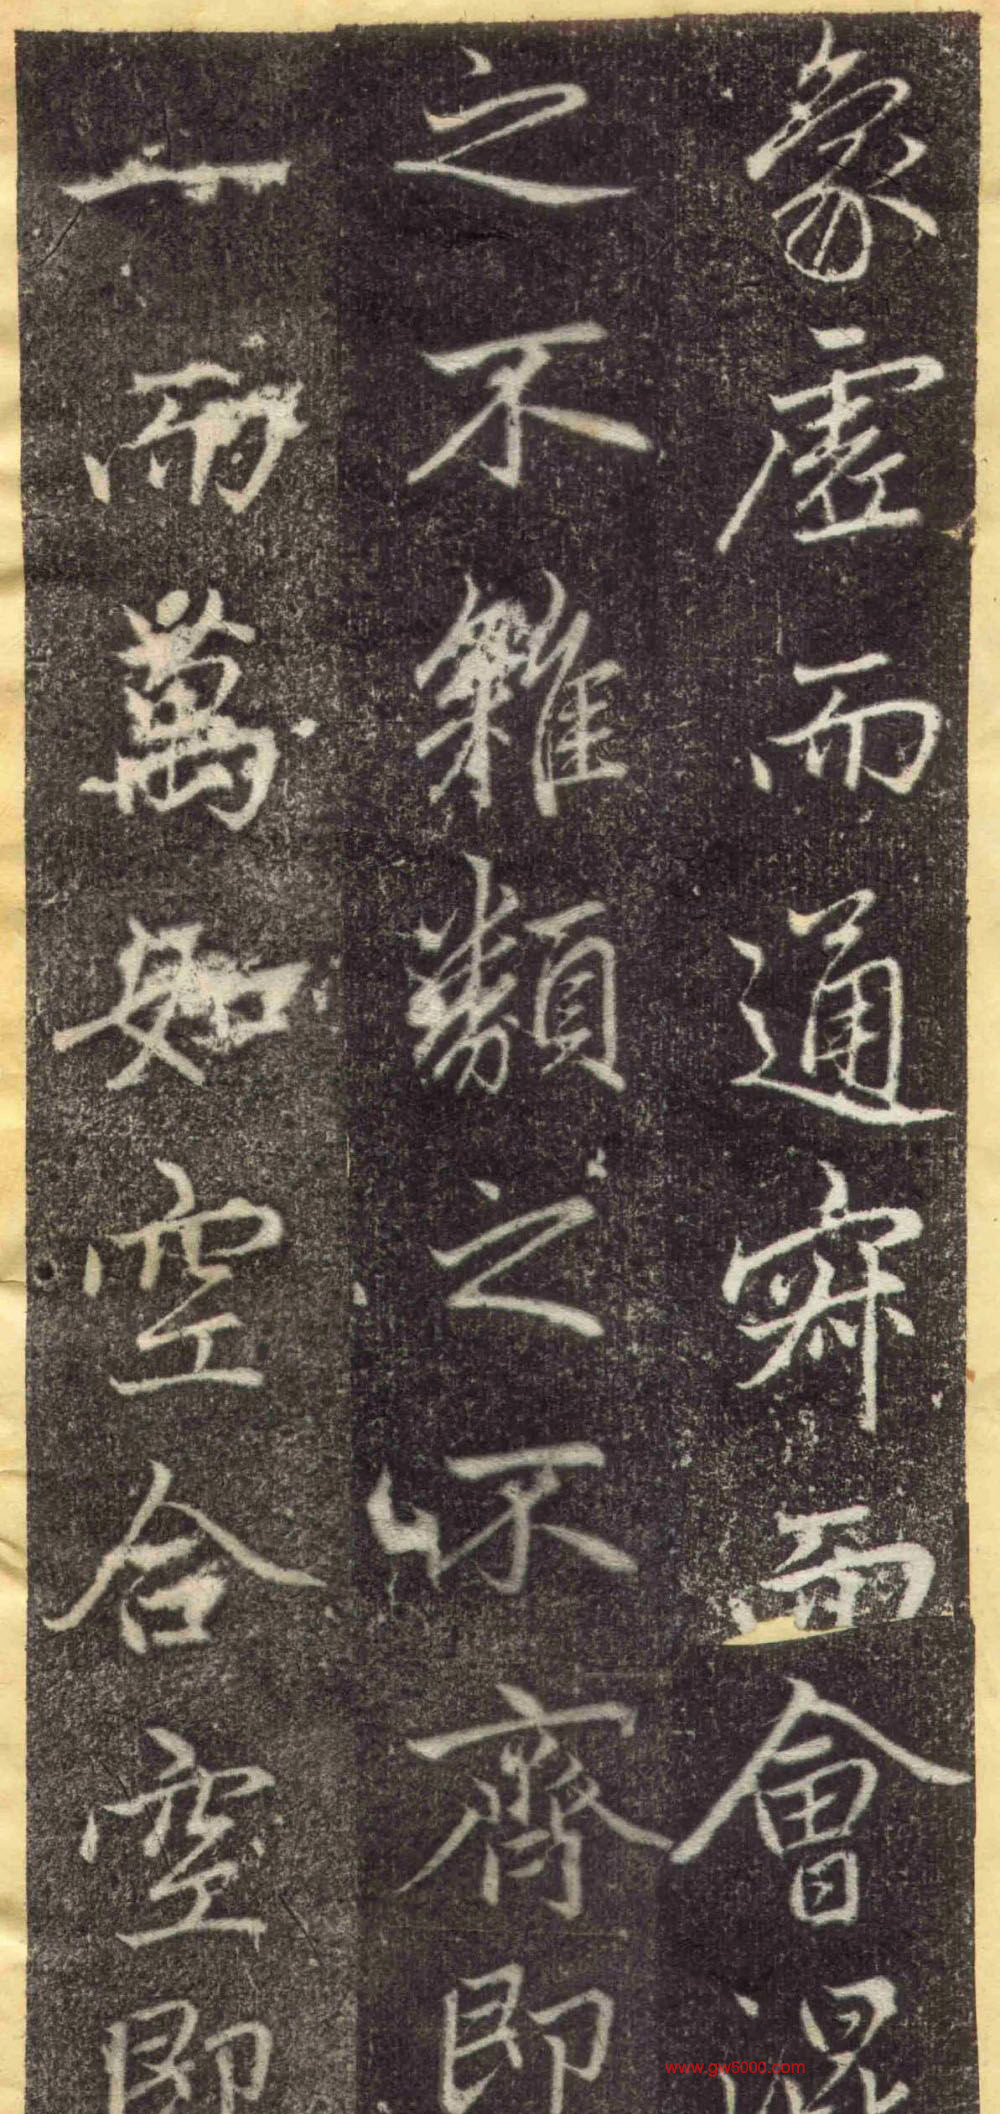 象虛而通寂而會混
之不雜類之不齊即
一而萬如空合空即
www.gw5000.com